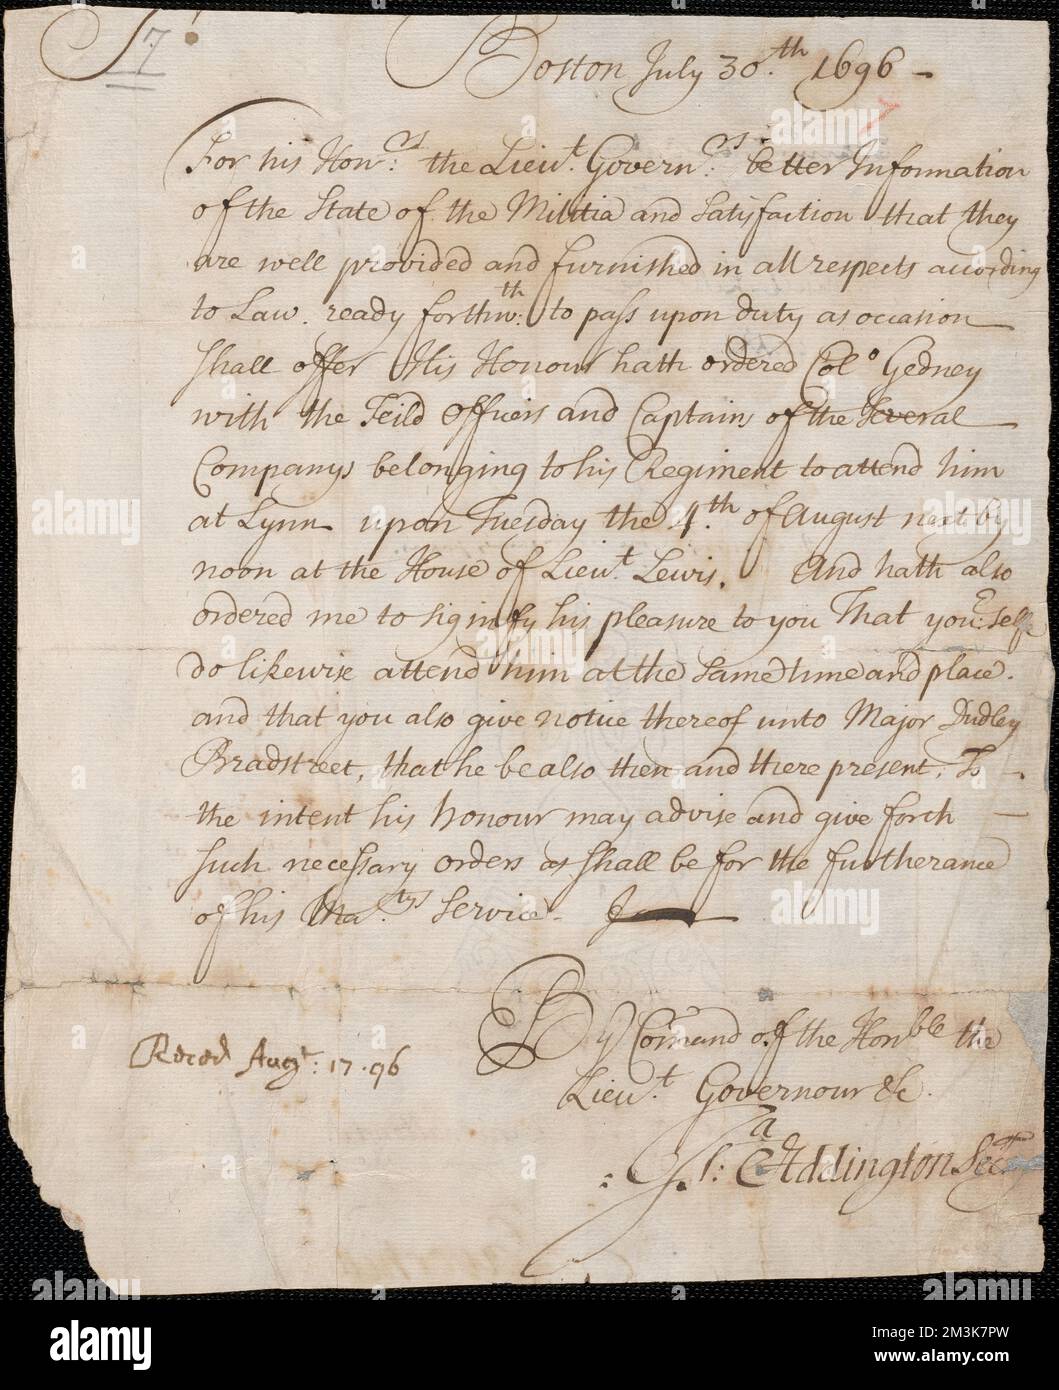 Sr.
7
Boston July 30.th 1696 -
For his Honrs: the Lieut. Governrs: better Information
of the State of the Militia and Satisfaction that they
are well provided and furnished in all respects according
to Law. ready forthwth: to pass upon duty as occasion
shall offer His Honour hath ordered Colo Gedney
with the Feild Officers and Captains of the Several
Companys belonging to his Regiment to attend him
at Lynn upon Tuesday the 4.th of August next by
noon at the House of Lieut. Lewis. And hath also
ordered me to signify his pleasure to you That yor: self
do likewise attend him at the same time and place.
and that you also give notice thereof unto Major Dudley
Bradstreet, that he be also then and there present, To -
the intent his honour may advise and give forth -
such necessary orders as shall be for the furtherance
of his Ma.tys Service -
By Comand of the Honble the
Lieut. Governour &c.
Recd Augt: 17. 96
Isa: Addington Secry
alamy
alamy
alamy
alamy
alamy
alamy
a
a
Image ID: 2M3K7PW
www.alamy.com